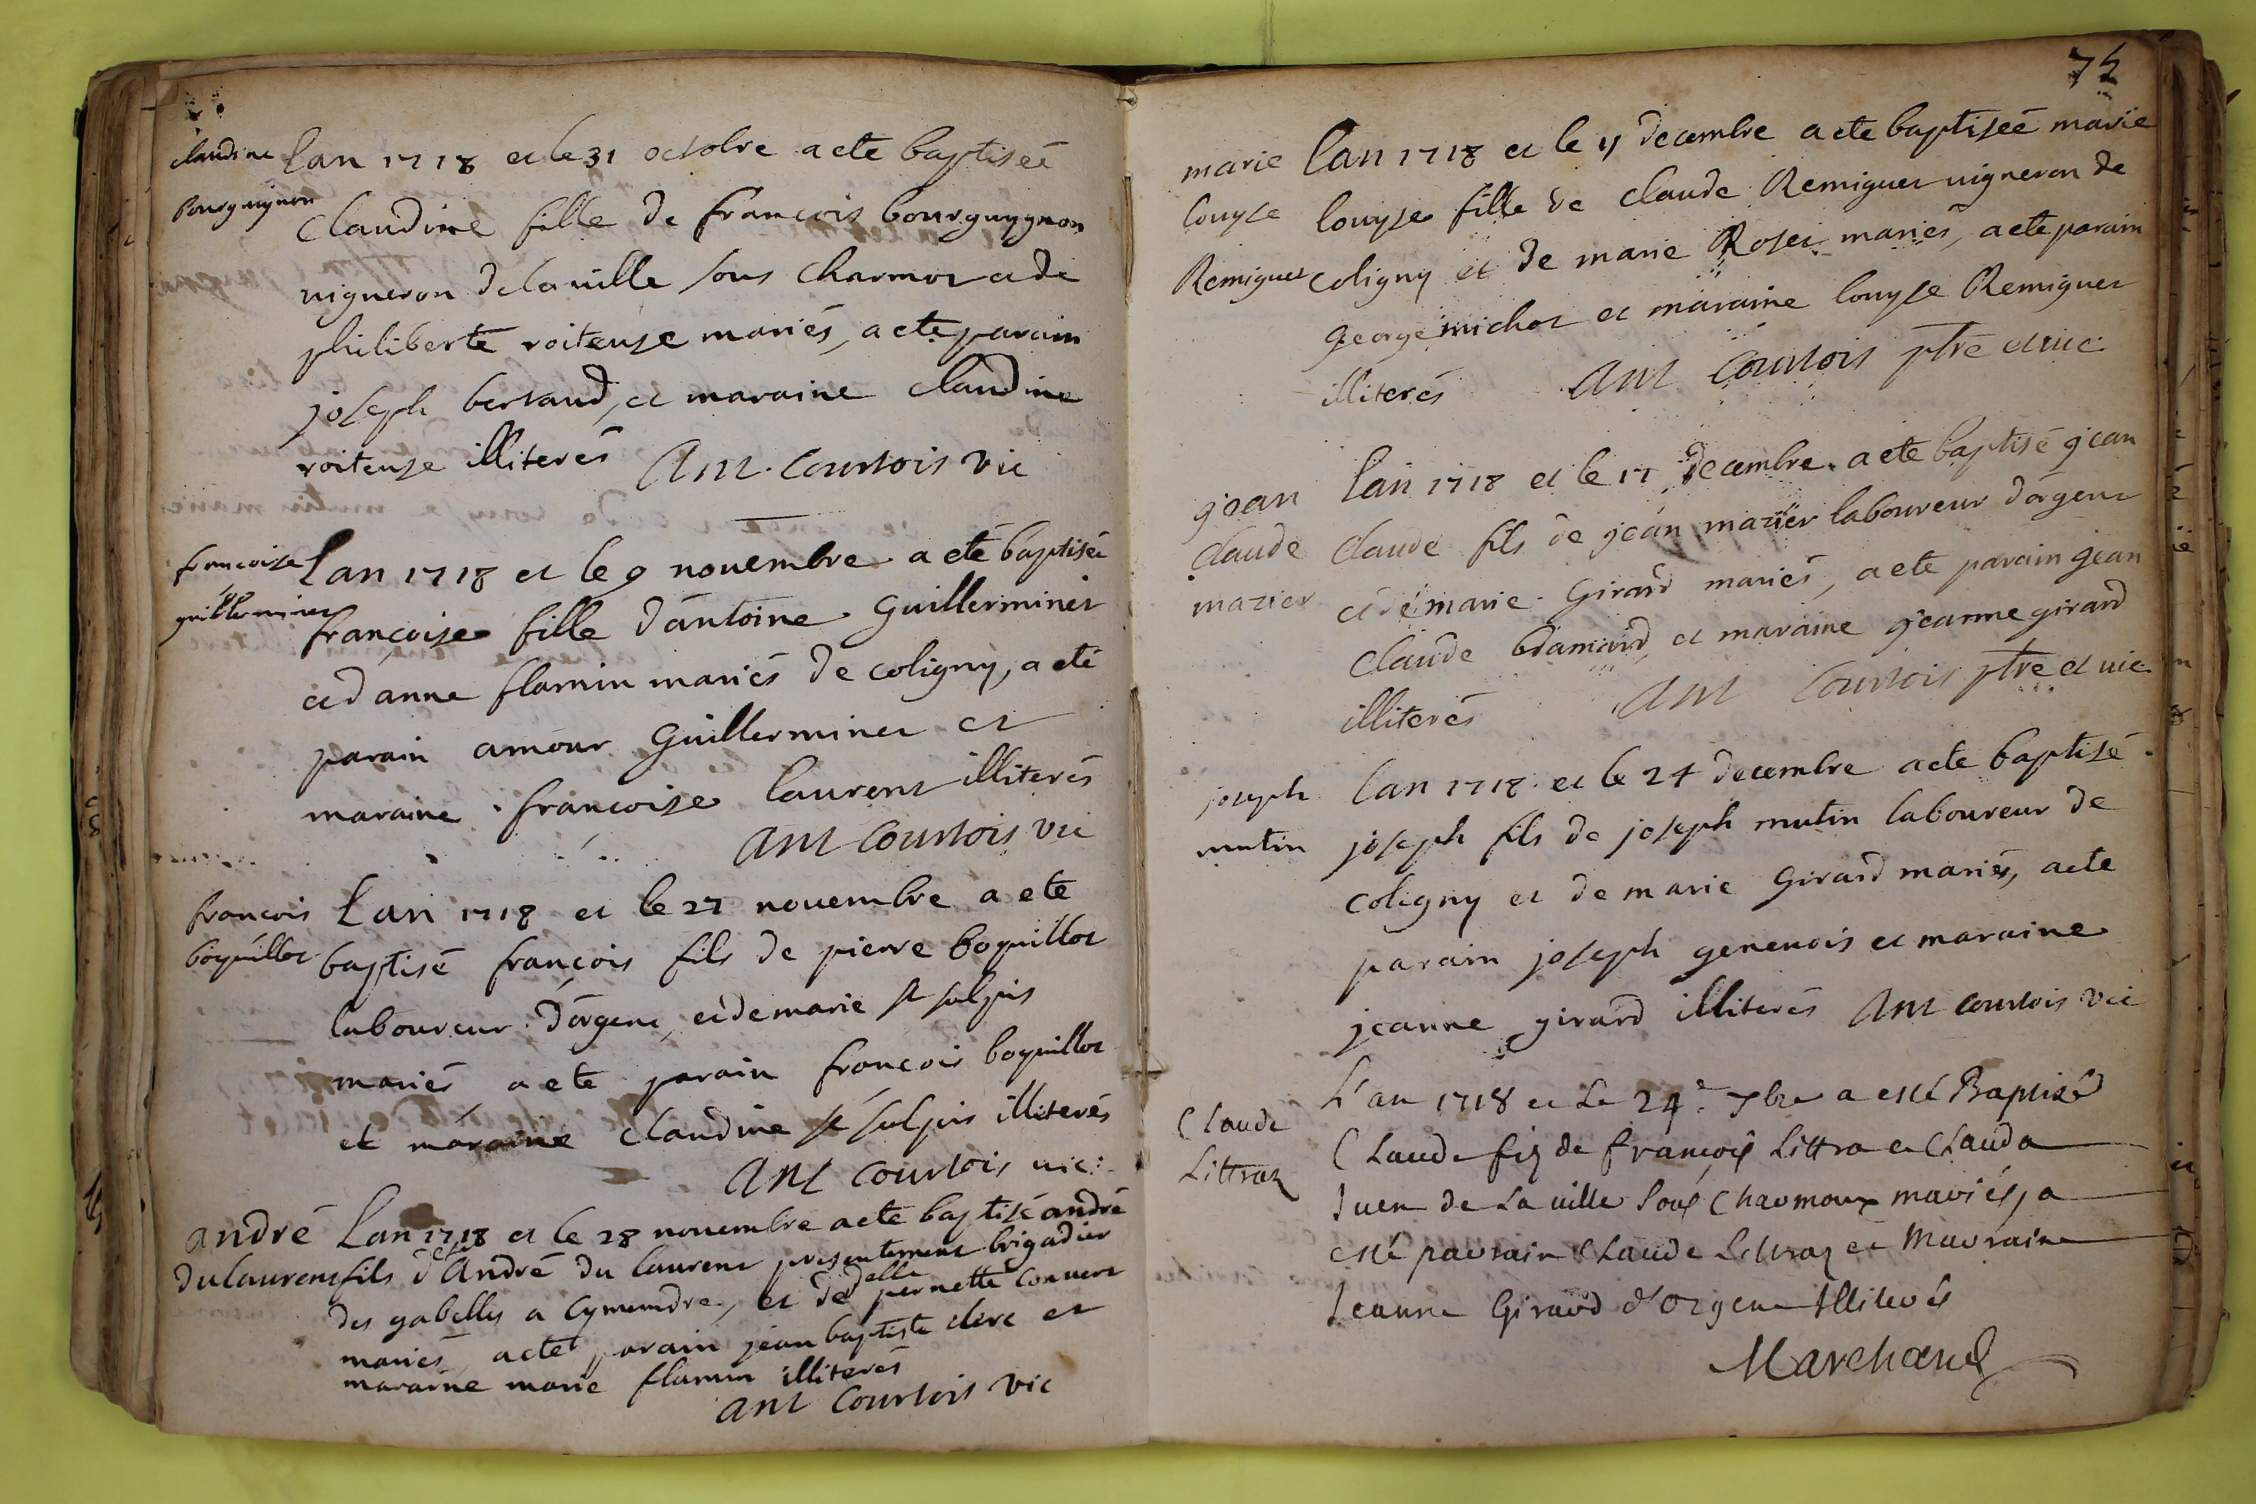 claudine
bourguignon
Lan 1718 et le 31 octobre a ete baptiseé
Claudine fille de francois bourguygnon
vigneron de la ville sous Charmoz et de
philiberte roiteuse mariés, a ete parain
joseph bertaud, et maraine Claudine
roiteuse illiterés Ant. Courtois vic
francoise
guillerminet
Lan 1718 et le 9 nouembre a eté baptisée
francoise fille dantoine Guillerminet
et d anne flamin mariés de coligny, a eté
parain amour Guillerminet et
maraine francoise laurent illiterés
Ant Courtois vic
francois
boquillot
Lan 1718 et le 27 nouembre a ete
baptisé francois fils de pierre boquillot
laboureur dorgent et de marie st sulpis
mariés a ete parain francois boquillot
et maraine Claudine st sulpis illiterés
Ant Courtois vic:
andré
du laurent
Lan 1718 et le 28 nouembre a ete baptisé andré
fils d andré du laurent presentement brigadier
des gabelles a Cymendre, et de delle pernette Convert
mariés a ete parain jean baptiste clerc et
maraine marie flamin illiterés
Ant Courtois vic
74
marie
louyse
Remiguet
lan 1718 et le 11 decembre a ete baptiseé marie
louyse fille de Claude Remiguet vigneron de
coligny et de marie Roset mariés, a ete parain
george michot et maraine louyse Remiguet
illiterés Ant Courtois ptre et vic
jean
claude
mazier
lan 1718 et le 17 decembre a ete baptisé jean
Claude fils de jean mazier laboureur dorgent
et de marie Girard mariés, a ete parain jean
Claude et maraine jeanne girard
illiterés Ant Courtois ptre et vic
joseph
mutin
lan 1718 et le 24 decembre a ete baptisé
joseph fils de joseph mutin laboureur de
coligny et de marie Girard mariés, a ete
parain joseph geneuois et maraine
jeanne girard illiterés Ant Courtois vic
Claude
Littraz
L'an 1718 et Le 24e 7bre a esté Baptizé
Claude fiz de françois Littra et Clauda
Juen de La uille sous Charmoux mariés, a
esté parrain Claude Littraz et Marraine
Jeanne Girard d'orgent Illiterés
Marchand